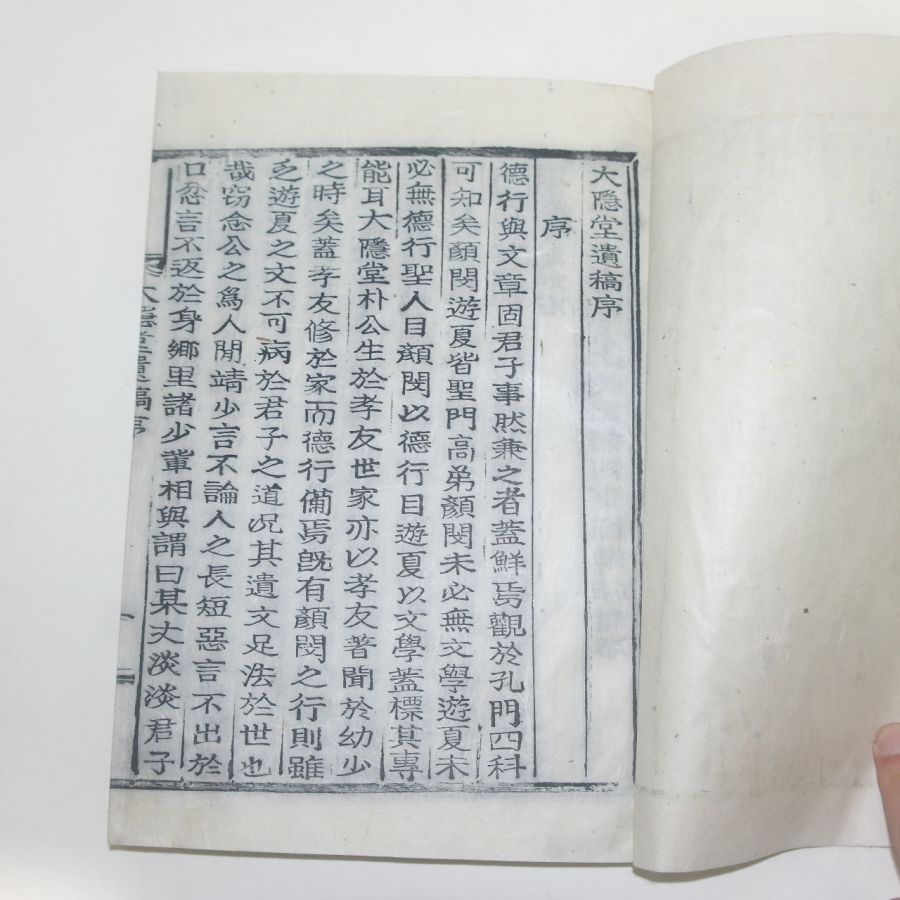 大隱堂遺稿序
序
德行與文章固君子事然兼之者蓋鮮焉觀於孔門四科
可知矣顏閔遊夏皆聖門高弟顏閔未必無文學遊夏未
必無德行聖人目顏閔以德行目遊夏以文學蓋標其專
能耳大隱堂朴公生於孝友世家亦以孝友著聞於幼少
之時矣蓋孝友修於家而德行備焉旣有顏閔之行則雖
乏遊夏之文不可病於君子之道況其遺文足法於世也
哉窃念公之爲人閒靖少言不論人之長短惡言不出於
口忿言不返於身鄉里諸少輩相與謂曰某丈淡淡君子
大隱堂遺稿序
一